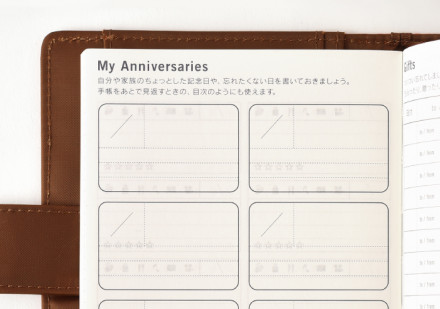 My Anniversaries
自分や家族のちょっとした記念日や、忘れたくない日を書いておきましょう。
手帳をあとで見返すときの、目次のようにも使えます。
Gifts